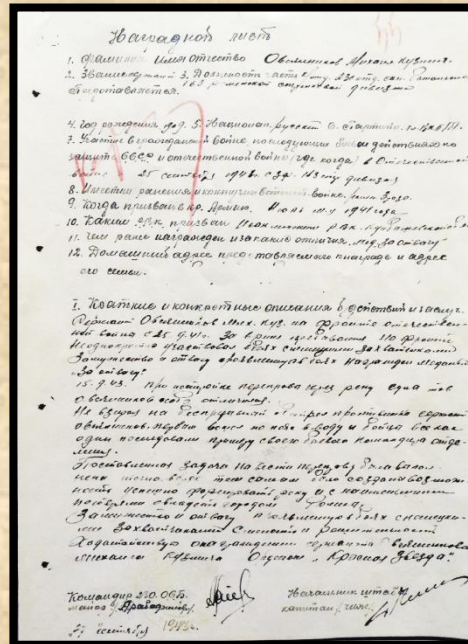 Наградной листъ
1. Фамилия Имя отчество Овсянников Михаил Кузмич.
2. Звание сержант 3. Должность часть Ком. 230 отд. сап. батальона
163 стрелковой дивизии
представляется
4. Год рождения 5. Национал. русский 6. Партийн.
7. Участие в гражданской войне, последующие боевые действиях по
защите СССР и отечественной войне (где когда) в Отечественной
войне 25 сентября 1941 г. С.З.Ф. 163 стр. дивизия
8. Имеет ли ранения и контузии в отечест. войне.
9. Когда призван в кр. Армию. Июль м-ц 1941 года
10. Каким Р.В.К. призван РВК. Куйбышевской
11. Чем ранее награжден и за какие отличия. Мед. За отвагу
12. Домашний адрес представляемого к награде и адрес
его семьи.
I. Краткие и конкретные описания б. действий и заслуг.
Сержант Овсянников Мих. Куз. на фронте отечествен-
ной войны с 25.9.41 г. За время пребывания на фронте
неоднократно участвовал в боях с немецкими захватчиками
За мужество и отвагу проявленную в боях награжден медалью
„За отвагу“.
15.9.43. При постройке переправы через реку
Овсянников особо отличился.
Не взирая на беспрерывный обстрел противника сержант
Овсянников первым вошел по пояс в воду и бойцы все как
один последовали примеру своего боевого командира отде-
ления.
Поставленная задача навести переправу была выпол-
нена тем самым была создана возмож-
ность успешно форсировать реку и с наименьшими
потерями овладеть городом
За мужество и отвагу проявленную в боях с немецки-
ми захватчиками
Ходатайствую о награждении сержанта Овсянникова
Михаила Кузмича Орденом „Красная Звезда“.
Командир 230 ОСБ. Начальник штаба
майор капитан
сентября 1943 г.